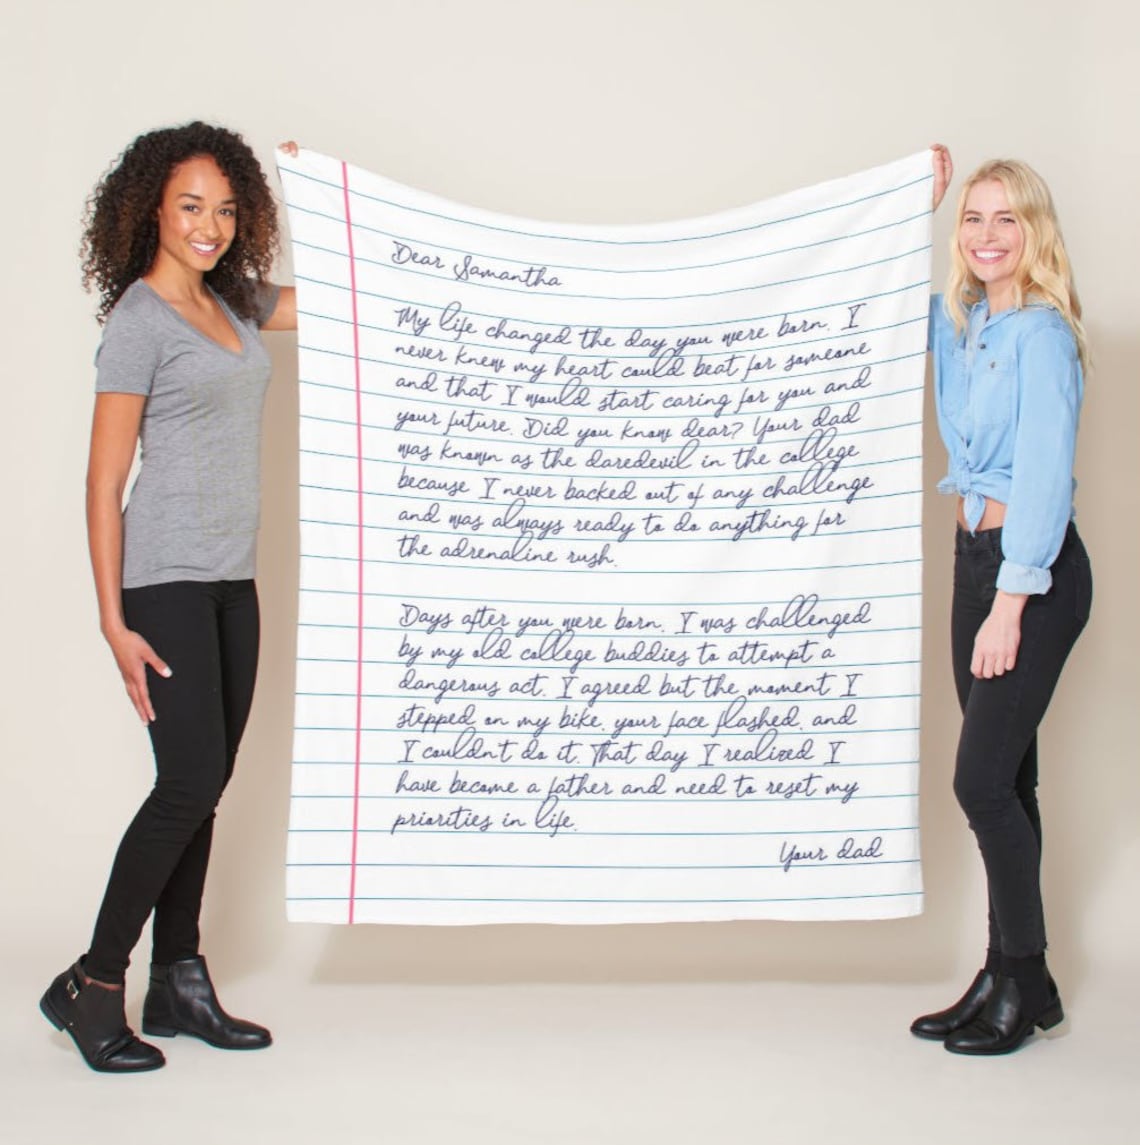 Dear Samantha
My life changed the day you were born. I
never knew my heart could beat for someone
and that I would start caring for you and
your future. Did you know dear? Your dad
was known as the daredevil in the college
because I never backed out of any challenge
and was always ready to do anything for
the adrenaline rush.
Days after you were born, I was challenged
by my old college buddies to attempt a
dangerous act. I agreed but the moment I
stepped on my bike, your face flashed, and
I couldn't do it. That day I realized I
have become a father and need to reset my
priorities in life.
Your dad